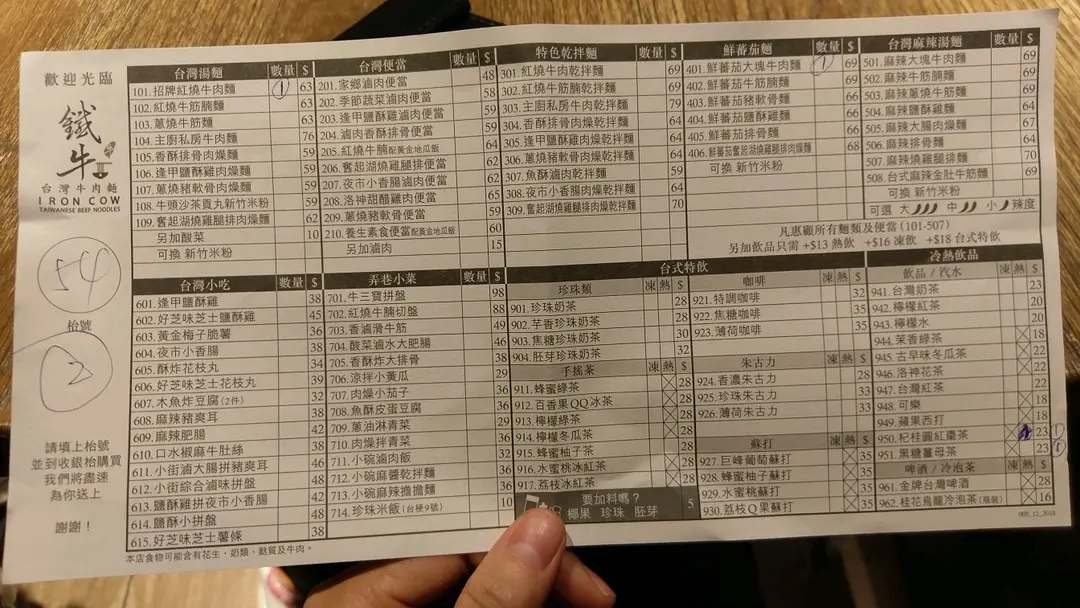 歡迎光臨
鐵牛
台灣牛肉麵
IRON COW
TAIWANESE BEEF NOODLES
54
枱號
2
請填上枱號
並到收銀枱購買
我們將盡速
為你送上
謝謝！
台灣湯麵 數量 $
101.招牌紅燒牛肉麵 1 63
102.紅燒牛筋腩麵 63
103.蔥燒牛筋麵 63
104.主廚私房牛肉麵 76
105.香酥排骨肉燥麵 59
106.逢甲鹽酥雞肉燥麵 59
107.蔥燒豬軟骨肉燥麵 59
108.牛頭沙茶貢丸新竹米粉 59
109.奮起湖燒雞腿排肉燥麵 62
另加酸菜 10
可換 新竹米粉
台灣便當 數量 $
201.家鄉滷肉便當 48
202.季節蔬菜滷肉便當 58
203.逢甲鹽酥雞滷肉便當 59
204.滷肉香酥排骨便當 59
205.紅燒牛腩配黃金地瓜飯 64
206.奮起湖燒雞腿排便當 62
207.夜市小香腸滷肉便當 59
208.洛神甜醋雞肉便當 65
209.蔥燒豬軟骨便當 59
210.養生素食便當配黃金地瓜飯 60
另加滷肉 15
特色乾拌麵 數量 $
301.紅燒牛肉乾拌麵 69
302.紅燒牛筋腩乾拌麵 69
303.主廚私房牛肉乾拌麵 79
304.香酥排骨肉燥乾拌麵 64
305.逢甲鹽酥雞肉燥乾拌麵 64
306.蔥燒豬軟骨肉燥乾拌麵 64
307.魚酥滷肉乾拌麵 59
308.夜市小香腸肉燥乾拌麵 64
309.奮起湖燒雞腿排肉燥乾拌麵 70
鮮蕃茄麵 數量 $
401.鮮蕃茄大塊牛肉麵 1 69
402.鮮蕃茄牛筋腩麵 69
403.鮮蕃茄豬軟骨麵 66
404.鮮蕃茄鹽酥雞麵 66
405.鮮蕃茄排骨麵 66
406.鮮蕃茄奮起湖燒雞腿排肉燥麵 68
可換 新竹米粉
台灣麻辣湯麵 數量 $
501.麻辣大塊牛肉麵 69
502.麻辣牛筋腩麵 69
503.麻辣蔥燒牛筋麵 69
504.麻辣鹽酥雞麵 64
505.麻辣大腸肉燥麵 67
506.麻辣排骨麵 64
507.麻辣燒雞腿排麵 70
508.台式麻辣金肚牛筋麵 69
可換 新竹米粉
可選 大 中 小 辣度
凡惠顧所有麵類及便當 (101-507)
另加飲品只需 +$13 熱飲 +$16 凍飲 +$18 台式特飲
台灣小吃 數量 $
601.逢甲鹽酥雞 38
602.好芝味芝士鹽酥雞 45
603.黃金梅子脆薯 36
604.夜市小香腸 38
605.酥炸花枝丸 34
606.好芝味芝士花枝丸 39
607.木魚炸豆腐(2件) 32
608.麻辣豬爽耳 38
609.麻辣肥腸 42
610.口水椒麻牛肚絲 38
611.小街滷大腸拼豬爽耳 46
612.小街綜合滷味拼盤 48
613.鹽酥雞拼夜市小香腸 42
614.鹽酥小拼盤 48
615.好芝味芝士薯條 38
弄巷小菜 數量 $
701.牛三寶拼盤 98
702.紅燒牛腩切盤 88
703.香滷滑牛筋 49
704.酸菜滷水大肥腸 46
705.香酥炸大排骨 38
706.涼拌小黃瓜 29
707.肉燥小茄子 36
708.魚酥皮蛋豆腐 36
709.蔥油淋青菜 29
710.肉燥拌青菜 36
711.小碗滷肉飯 32
712.小碗麻醬乾拌麵 36
713.小碗麻辣擔擔麵 36
714.珍珠米飯(台梗9號) 10
台式特飲
珍珠類 凍 熱 $
901.珍珠奶茶 28
902.芋香珍珠奶茶 30
903.焦糖珍珠奶茶 28
904.胚芽珍珠奶茶 32
手搖茶 凍 熱 $
911.蜂蜜綠茶 28
912.百香果QQ冰茶 28
913.檸檬綠茶 28
914.檸檬冬瓜茶 28
915.蜂蜜柚子茶 28
916.水蜜桃冰紅茶 28
917.荔枝冰紅茶 28
要加料嗎？
椰果 珍珠 胚芽 5
咖啡 凍 熱 $
921.特調咖啡 32
922.焦糖咖啡 35
923.薄荷咖啡 35
朱古力 凍 熱 $
924.香濃朱古力 28
925.珍珠朱古力 33
926.薄荷朱古力 33
蘇打 凍 熱 $
927.巨峰葡萄蘇打 35
928.蜂蜜柚子蘇打 35
929.水蜜桃蘇打 35
930.荔枝Q果蘇打 35
冷熱飲品
飲品 / 汽水 凍 熱 $
941.台灣奶茶 23
942.檸檬紅茶 20
943.檸檬水 20
944.茉香綠茶 18
945.古早味冬瓜茶 22
946.洛神花茶 22
947.台灣紅茶 22
948.可樂 18
949.蘋果西打 18
950.杞桂圓紅棗茶 23 1
951.黑糖薑母茶 23 1
啤酒 / 冷泡茶 $
961.金牌台灣啤酒 28
962.桂花烏龍冷泡茶(瓶裝) 16
本店食物可能含有花生、奶類、麩質及牛肉。
005_12_2018